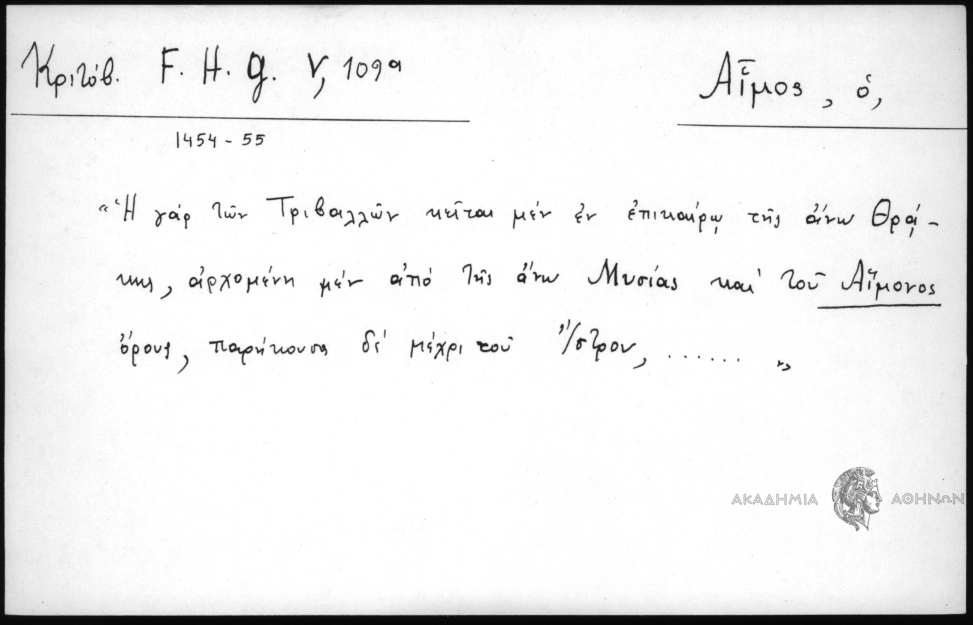 Κριτόβ. F. H. G. V, 109ᵃ
Αἷμος, ὁ,
1454 - 55
"Ἡ γάρ τῶν Τριβαλλῶν κεῖται μέν ἐν ἐπικαίρῳ τῆς ἄνω Θρᾴ-
κης, ἀρχομένη μέν ἀπό τῆς ἄνω Μυσίας καί τοῦ Αἵμονος
ὄρους, παρήκουσα δέ μέχρι τοῦ Ἴστρου, ...... "
ΑΚΑΔΗΜΙΑ ΑΘΗΝΩΝ